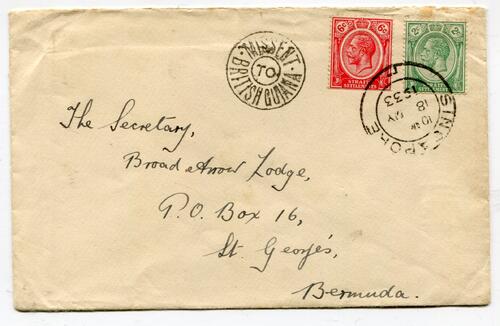 MISSENT
TO
BRITISH GUIANA
6c 6c
STRAITS
SETTLEMENTS
2c 2c
STRAITS
SETTLEMENTS
SINGAPORE
18
1933
The Secretary,
Broad Arrow Lodge,
P.O. Box 16,
St. George's,
Bermuda.